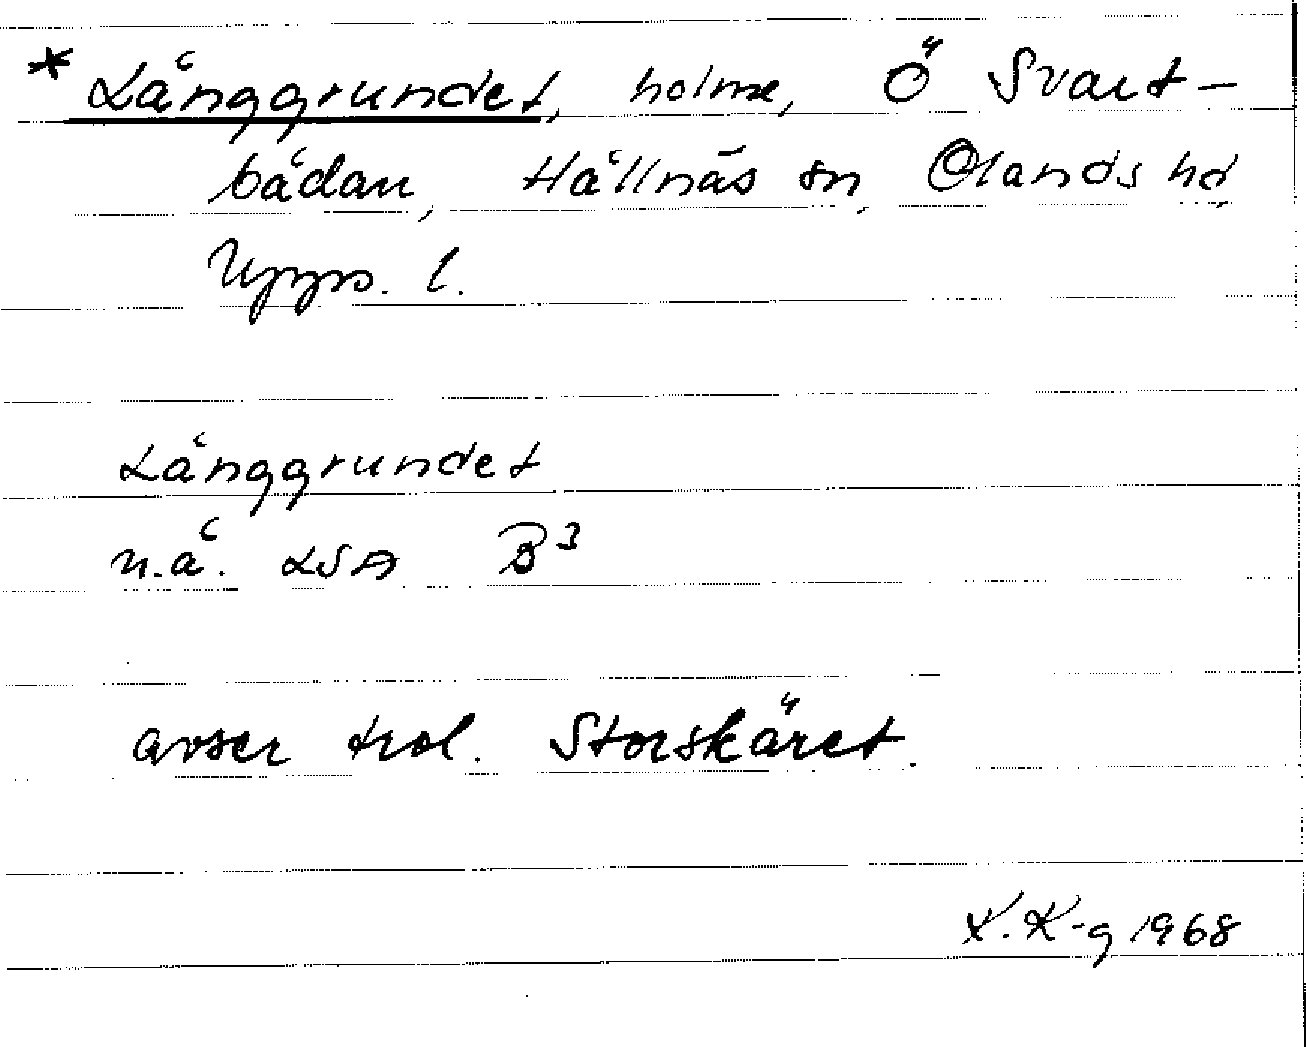 * Långgrundet, holme, Ö Svart-
bådan, Hållnäs sn, Olands hd,
Upps. l.
Långgrundet
n.å. LSA B3
avser trol. Storskäret.
K. K-g 1968